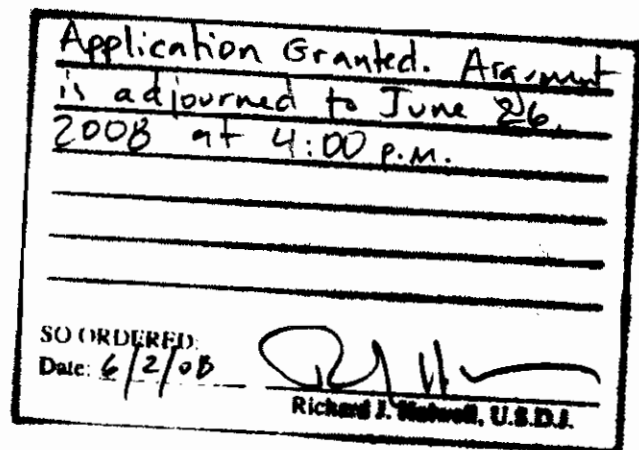 Application Granted. Argument
is adjourned to June 26,
2008 at 4:00 p.m.
SO ORDERED:
Date: 6/2/08
Richard J. Holwell, U.S.D.J.